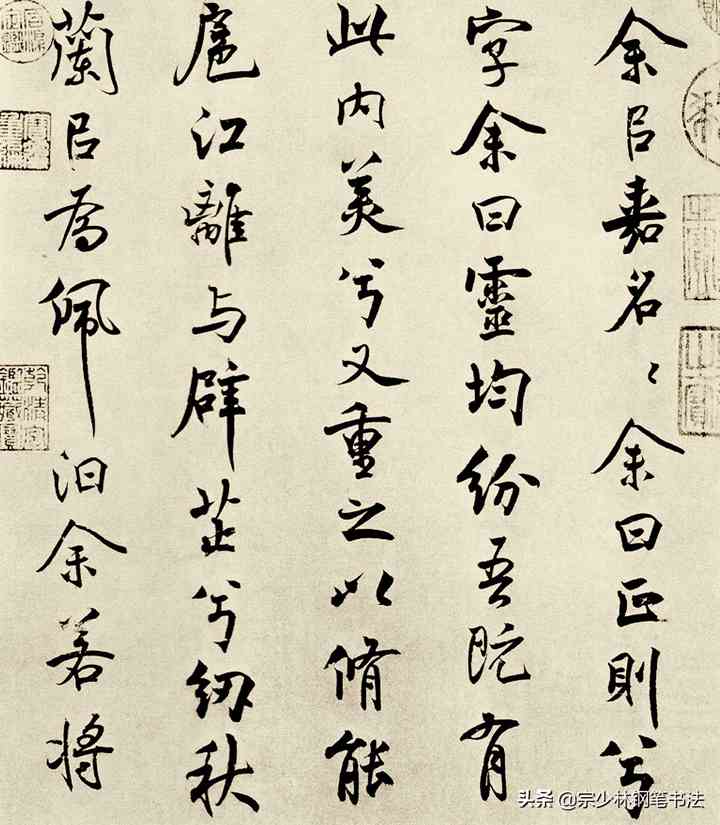 余㠯嘉名〻余曰正則兮
字余曰靈均紛吾既有
此内美兮又重之以脩能
扈江離与辟芷兮紉秋
蘭㠯為佩汩余若将
头条 @宗少林钢笔书法